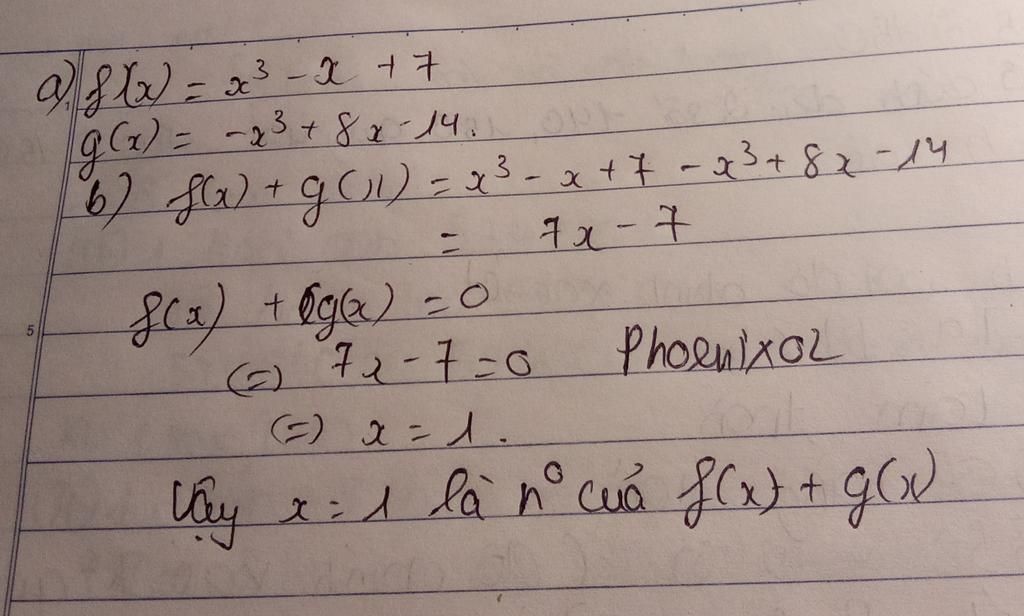 a) f(x) = x³ - x + 7
g(x) = -x³ + 8x - 14.
b) f(x) + g(x) = x³ - x + 7 - x³ + 8x - 14
= 7x - 7
f(x) + g(x) = 0
(=) 7x - 7 = 0 PhoenixOL
(=) x = 1.
Vậy x = 1 là n⁰ cuả f(x) + g(x)
5